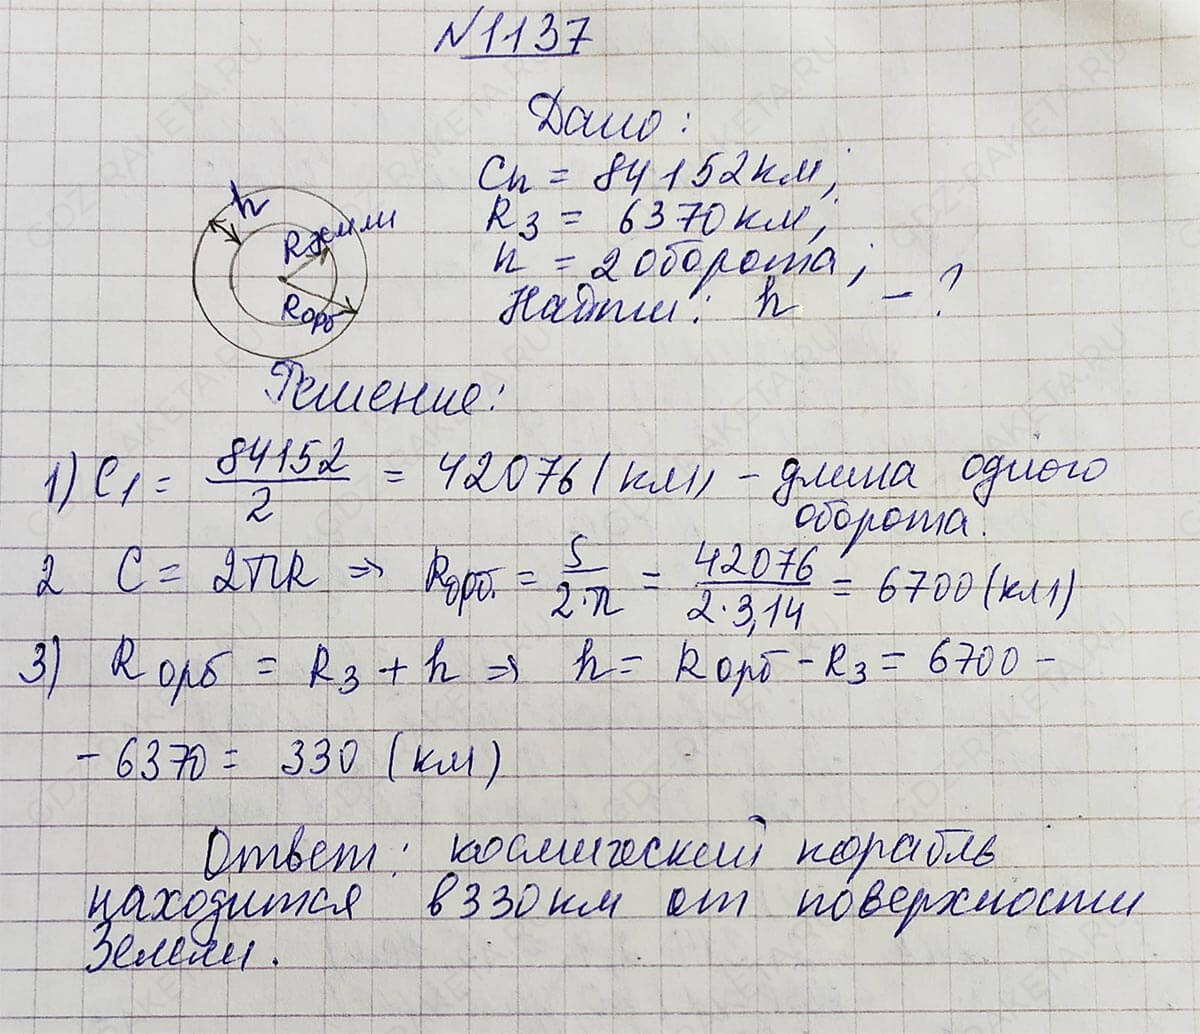 №1137
Дано:
Cn = 84152 км;
Rз = 6370 км;
n = 2 оборота;
Найти: h - ?
h
Rземли
Rорб
Решение:
1) C₁ = 84152/2 = 42076 (км) - длина одного
оборота.
2 C = 2πR ⇒ Rорб. = S/2·π = 42076/2·3,14 = 6700 (км)
3) Rорб = Rз + h ⇒ h = Rорб - Rз = 6700 -
- 6370 = 330 (км)
Ответ: космический корабль
находится в 330 км от поверхности
Земли.
GDZ-RAKETA.RU